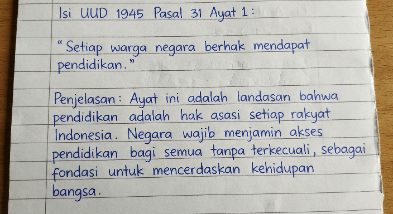 Isi UUD 1945 Pasal 31 Ayat 1:
"Setiap warga negara berhak mendapat
pendidikan."
Penjelasan: Ayat ini adalah landasan bahwa
pendidikan adalah hak asasi setiap rakyat
Indonesia. Negara wajib menjamin akses
pendidikan bagi semua tanpa terkecuali, sebagai
fondasi untuk mencerdaskan kehidupan
bangsa.